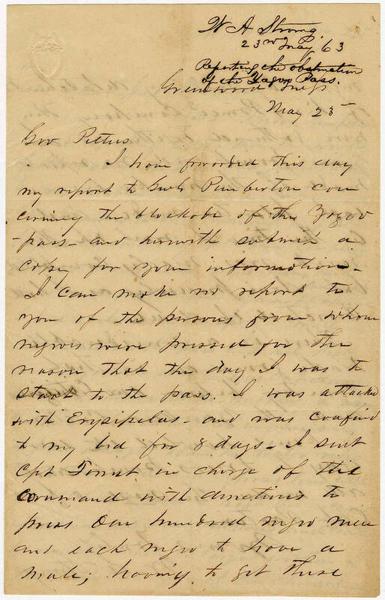 W A Strong
23rd May '63
Reporting the obstruction
of the Yazoo Pass.
Greenwood Miss
May 25
Gov Pettus
I have forwarded this day
my report to Genl Pemberton con
cerning the blockade of the Yazoo
pass - and herewith submit a
copy for your information -
I can make no report to
you of the persons from whom
negroes were pressed for the
reason that the day I was to
start to the pass. I was attacked
with Erysipelas - and was confined
to my bed for 8 days - I sent
Cpt in charge of the
command with directions to
press One hundred negro men
and each negro to have a
mule; hoping to get these